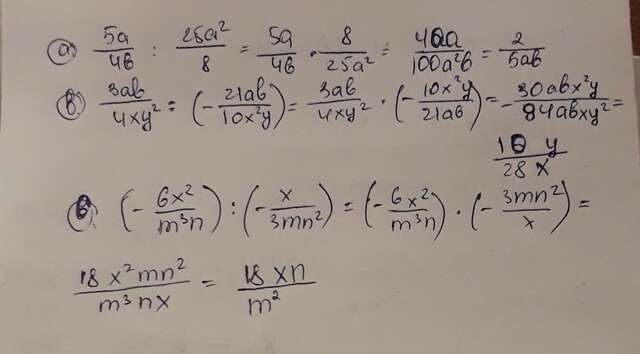 а) 5a/4b : 25a²/8 = 5a/4b · 8/25a² = 40a/100a²b = 2/5ab
б) 3ab/4xy² : (-21ab/10x²y) = 3ab/4xy² · (-10x²y/21ab) = -30abx²y/84abxy² =
10 y/28 x
в) (-6x²/m³n) : (-x/3mn²) = (-6x²/m³n) · (-3mn²/x) =
18x²mn²/m³nx = 18xn/m²